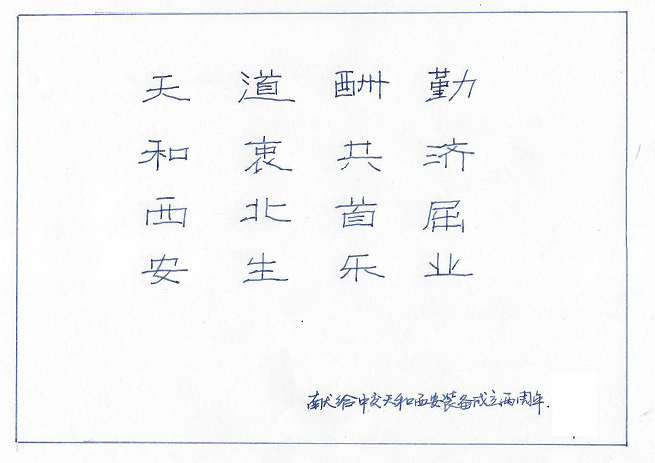 天道酬勤
和衷共济
西北首屈
安生乐业
献给中交天和西安装备成立两周年.